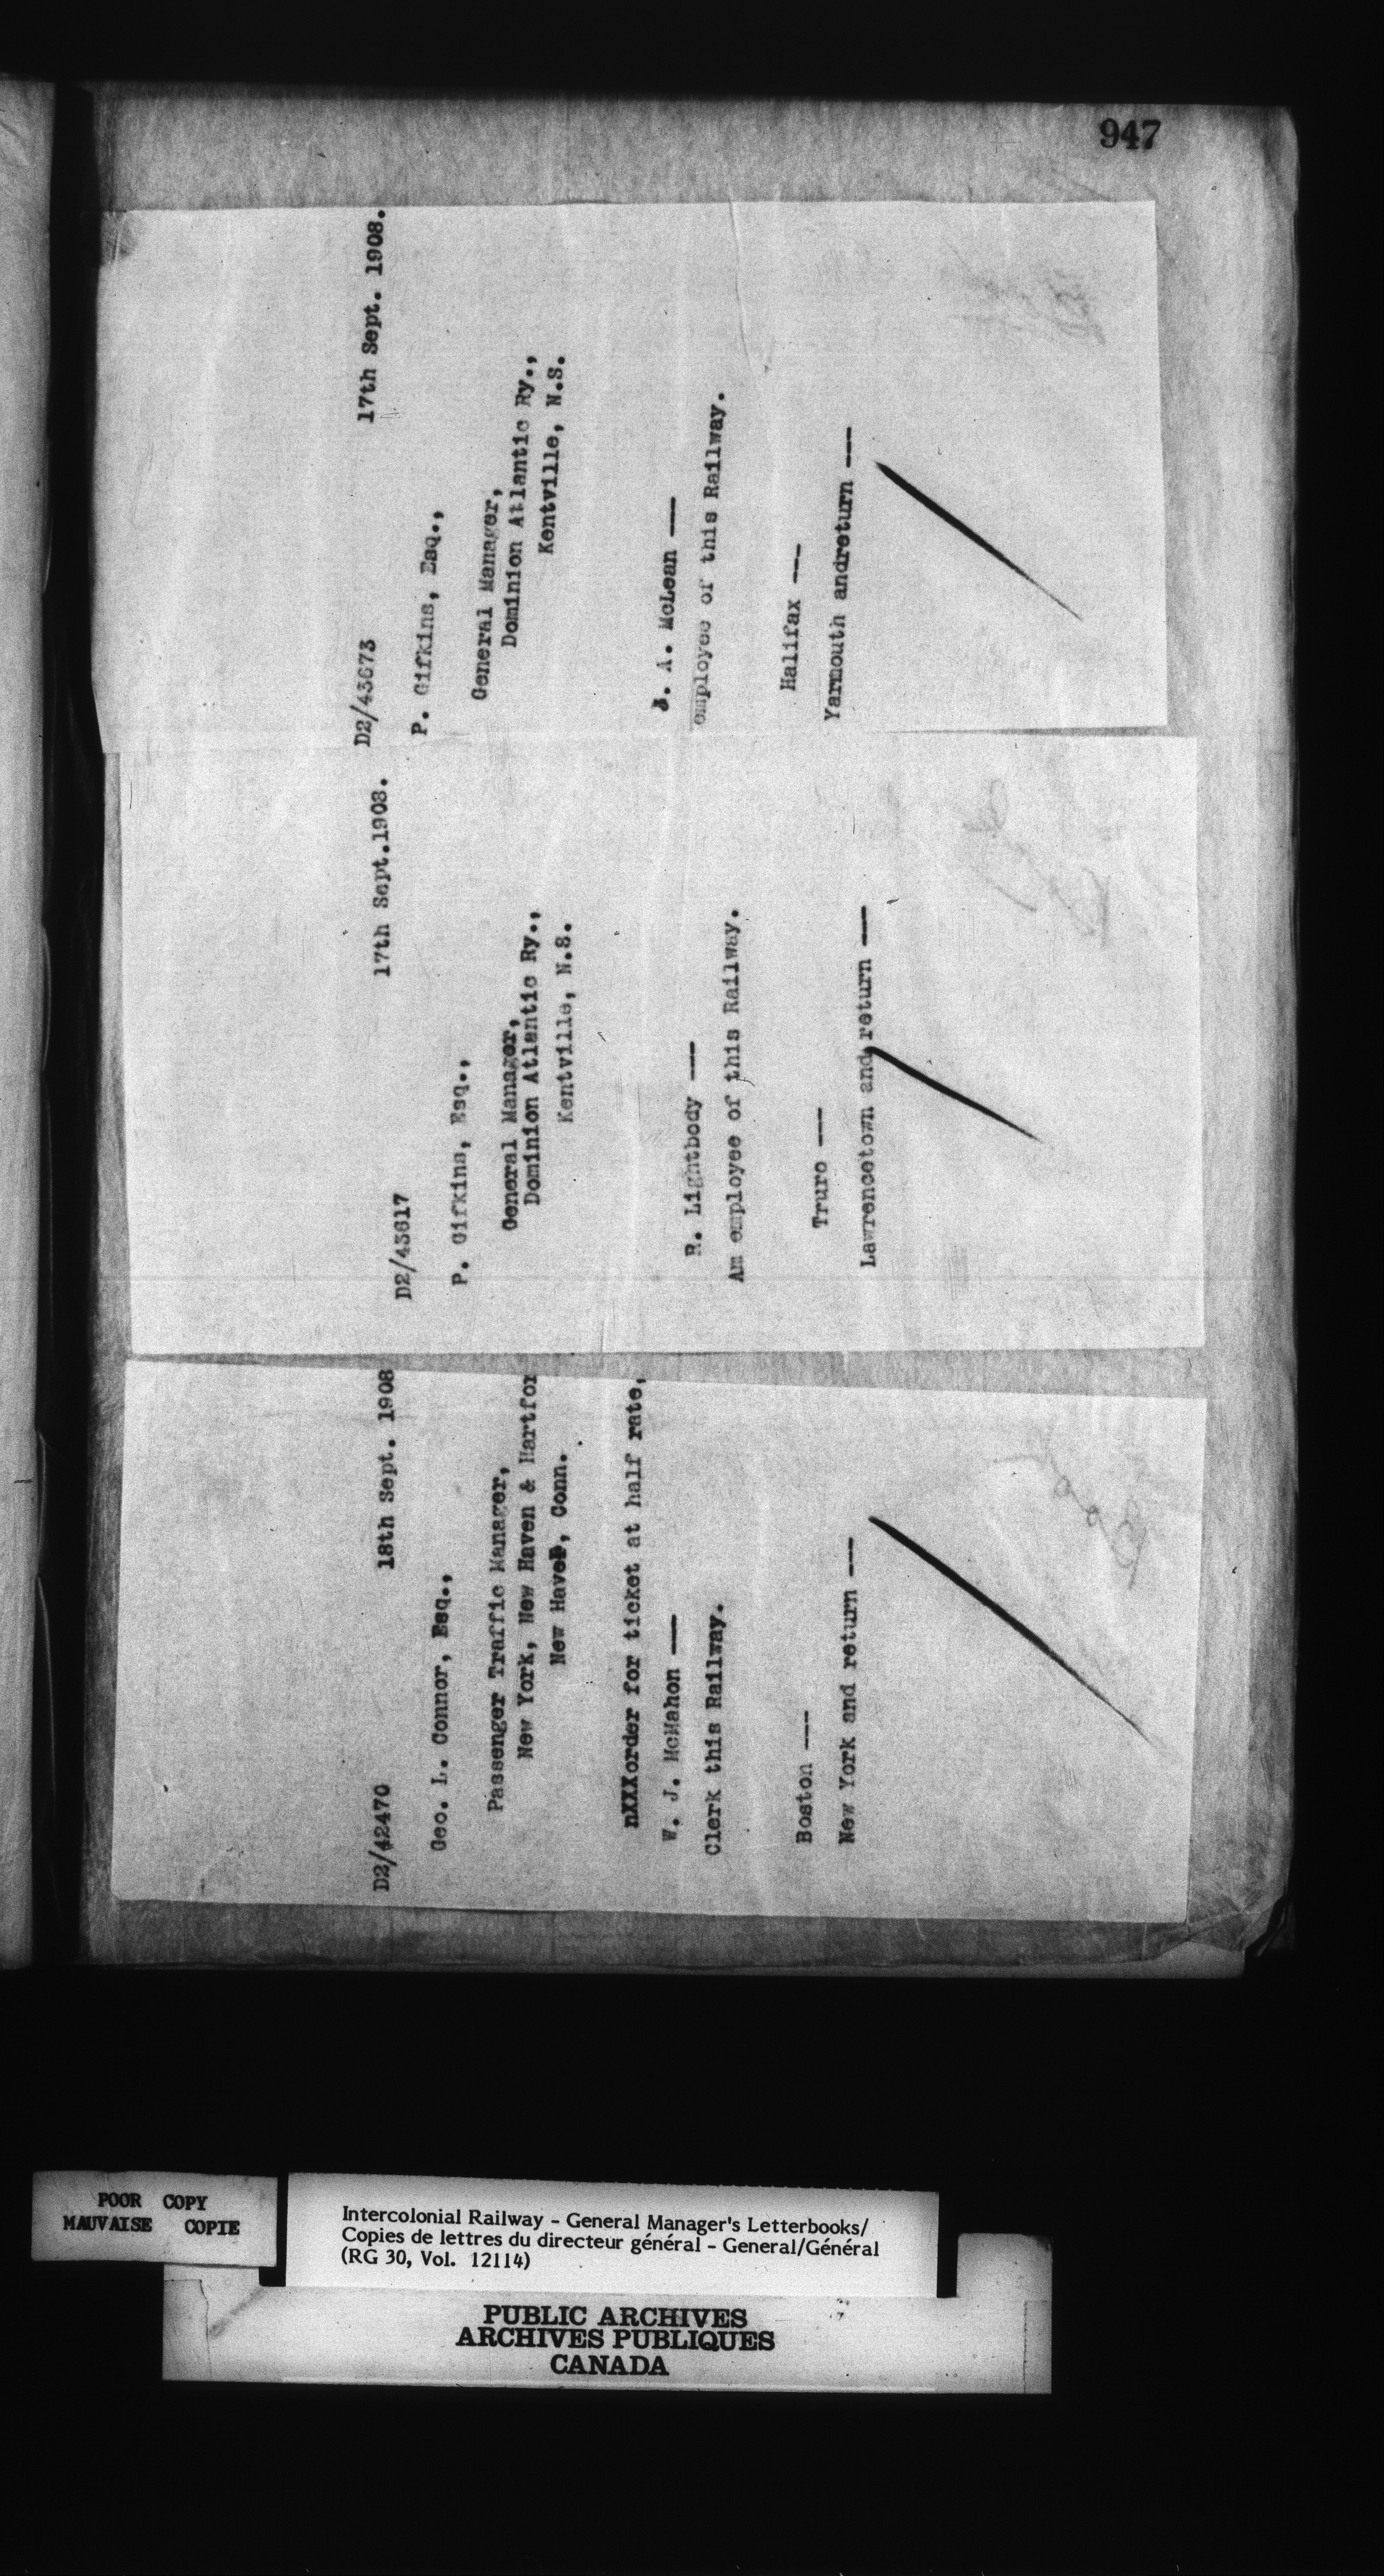 947
D2/42470 18th Sept. 1908
Geo. L. Connor, Esq.,
Passenger Traffic Manager,
New York, New Haven & Hartfor
New Haven, Conn.
nXXXorder for ticket at half rate,
W. J. McMahon ---
Clerk this Railway.
Boston ---
New York and return ---
D2/43617 17th Sept.1908.
P. Gifkins, Esq.,
General Manager,
Dominion Atlantic Ry.,
Kentville, N.S.
R. Lightbody ---
Am employee of this Railway.
Truro ---
Lawrencetown and return ---
D2/43673 17th Sept. 1908.
P. Gifkins, Esq.,
General Manager,
Dominion Atlantic Ry.,
Kentville, N.S.
A. McLean ---
employee of this Railway.
Halifax ---
Yarmouth andreturn ---
POOR COPY
MAUVAISE COPIE
Intercolonial Railway - General Manager's Letterbooks/
Copies de lettres du directeur général - General/Général
(RG 30, Vol. 12114)
PUBLIC ARCHIVES
ARCHIVES PUBLIQUES
CANADA